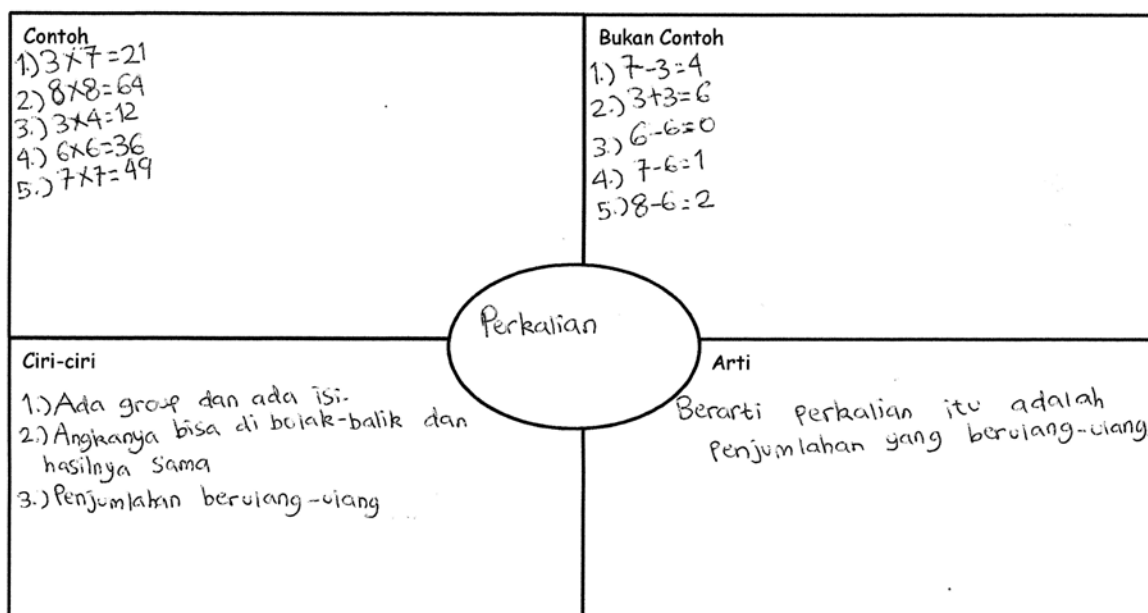 Contoh
1.) 3×7=21
2.) 8×8=64
3.) 3×4=12
4.) 6×6=36
5.) 7×7=49
Bukan Contoh
1.) 7-3=4
2.) 3+3=6
3.) 6-6=0
4.) 7-6=1
5.) 8-6=2
Perkalian
Ciri-ciri
1.) Ada group dan ada isi.
2.) Angkanya bisa di bolak-balik dan
hasilnya sama
3.) Penjumlahan berulang-ulang
Arti
Berarti perkalian itu adalah
Penjumlahan yang berulang-ulang